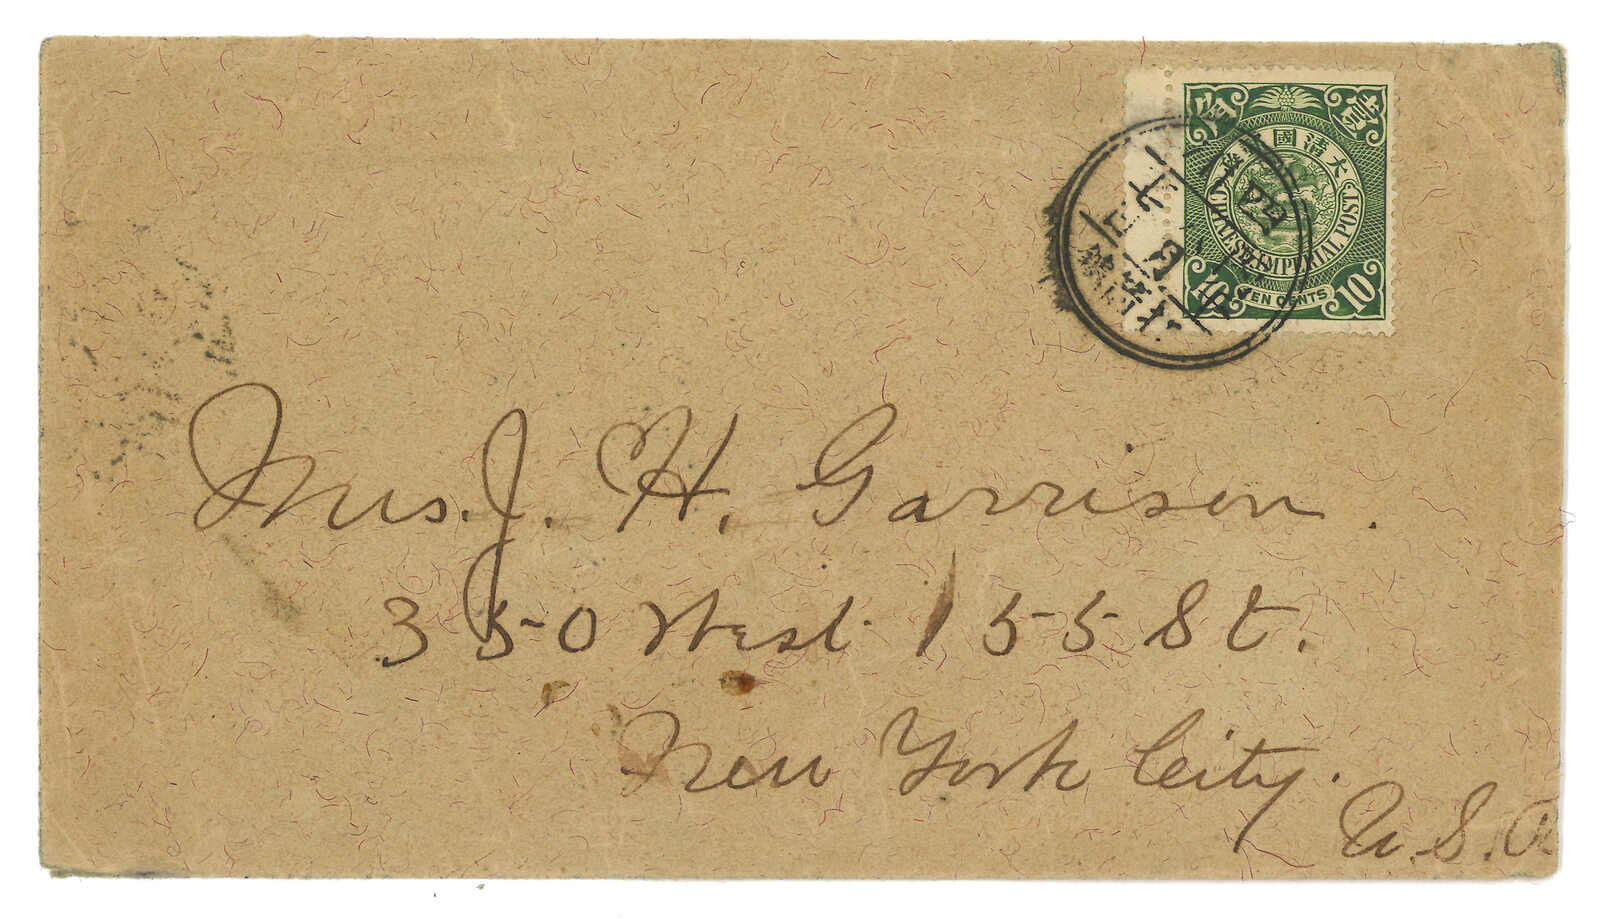 大清國
CHINESE IMPERIAL POST
10 10
TEN CENTS
Mrs. J. H. Garrison.
350 West 155 St.
New York City.
U.S.A